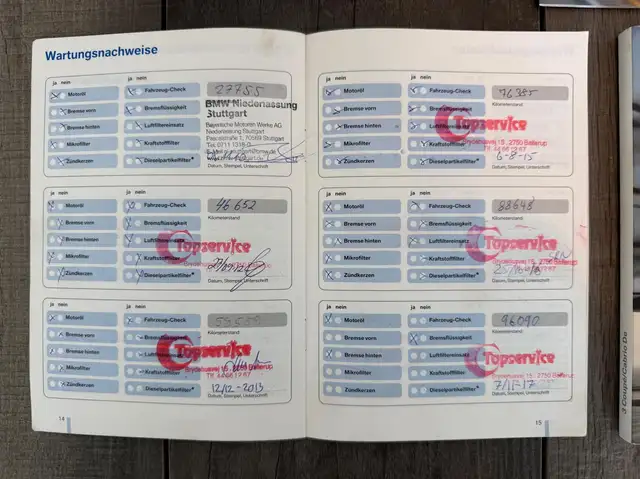 Wartungsnachweise
ja nein
ja nein
Motoröl
Fahrzeug-Check
27755
Bremse vorn
Bremsflüssigkeit
BMW Niederlassung
Stuttgart
Bremse hinten
Luftfiltereinsatz
Bayerische Motoren Werke AG
Niederlassung Stuttgart
Mikrofilter
Kraftstofffilter
Zündkerzen
Dieselpartikelfilter*
Datum, Stempel, Unterschrift
ja nein
ja nein
Motoröl
Fahrzeug-Check
46652
Kilometerstand
Bremse vorn
Bremsflüssigkeit
Bremse hinten
Luftfiltereinsatz
Topservice
Mikrofilter
Kraftstofffilter
Zündkerzen
Dieselpartikelfilter*
Datum, Stempel, Unterschrift
ja nein
ja nein
Motoröl
Fahrzeug-Check
Kilometerstand
Bremse vorn
Bremsflüssigkeit
Bremse hinten
Luftfiltereinsatz
Topservice
Mikrofilter
Kraftstofffilter
Tlf. 44 66 12 67
Zündkerzen
Dieselpartikelfilter*
12/12-2013
Datum, Stempel, Unterschrift
14
ja nein
ja nein
Motoröl
Fahrzeug-Check
76385
Kilometerstand
Bremse vorn
Bremsflüssigkeit
Bremse hinten
Luftfiltereinsatz
Topservice
Mikrofilter
Kraftstofffilter
2750 Ballerup
Zündkerzen
Dieselpartikelfilter*
6-8-15
Datum, Stempel, Unterschrift
ja nein
ja nein
Motoröl
Fahrzeug-Check
88648
Kilometerstand
Bremse vorn
Bremsflüssigkeit
Bremse hinten
Luftfiltereinsatz
Topservice
Mikrofilter
Kraftstofffilter
2750 Ballerup
Zündkerzen
Dieselpartikelfilter*
Datum, Stempel, Unterschrift
ja nein
ja nein
Motoröl
Fahrzeug-Check
96090
Kilometerstand
Bremse vorn
Bremsflüssigkeit
Bremse hinten
Luftfiltereinsatz
Topservice
Mikrofilter
Kraftstofffilter
2750 Ballerup
Zündkerzen
Dieselpartikelfilter*
7/11-17
Datum, Stempel, Unterschrift
15
3 Coupé/Cabrio De